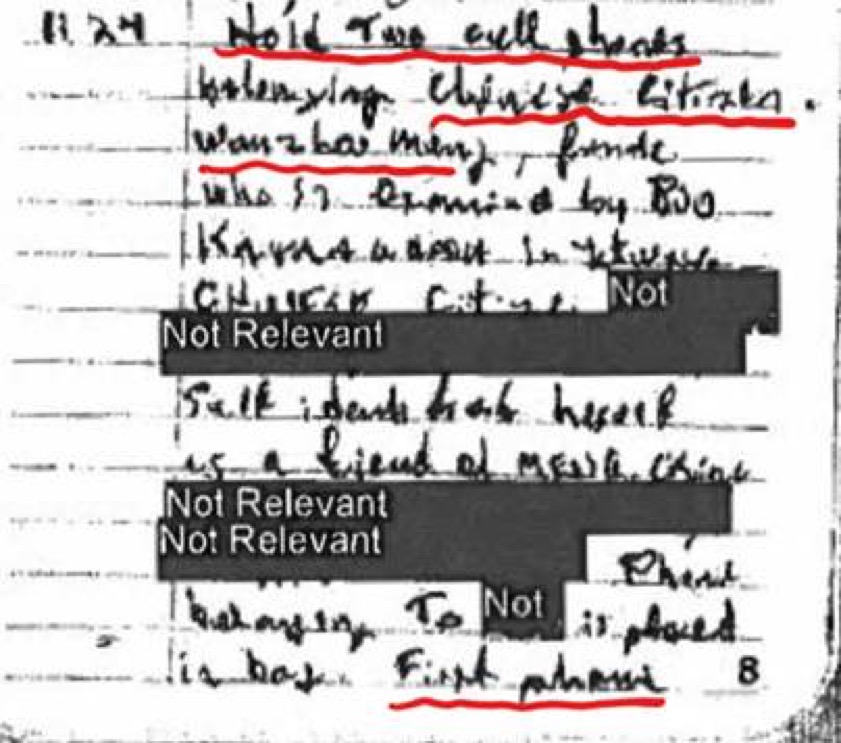 11:24 Hold Two cell phones
belonging Chinese Citizen.
wanzhou Meng, female
who is examined by BSO
Chinese Citizen. Not
Not Relevant
Self identifies herself
as a friend of MENG. 
Not Relevant
Not Relevant
Phone
belonging To Not is placed
in bag. First phone 8